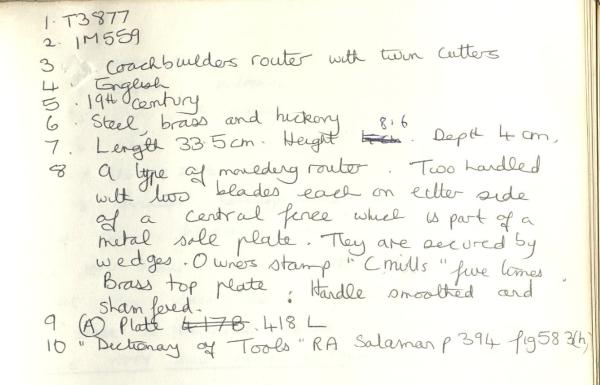 1. T3877
2. 1M559
3 Coachbuilders router with twin cutters
4. English
5. 19th century
6 Steel, brass and hickory
7. Length 33.5cm. Height 8.6. Depth 4cm.
8 A type of moulding router. Two handled
with two blades each on either side
of a central fence which is part of a
metal sole plate. They are secured by
wedges. Owners stamp "C Mills" five times.
Brass top plate. Handle smoothed and
shamfered.
9 (A) Plate 4178 .418 L
10 "Dictionary of Tools" RA Salaman p 394 fig 583(h)